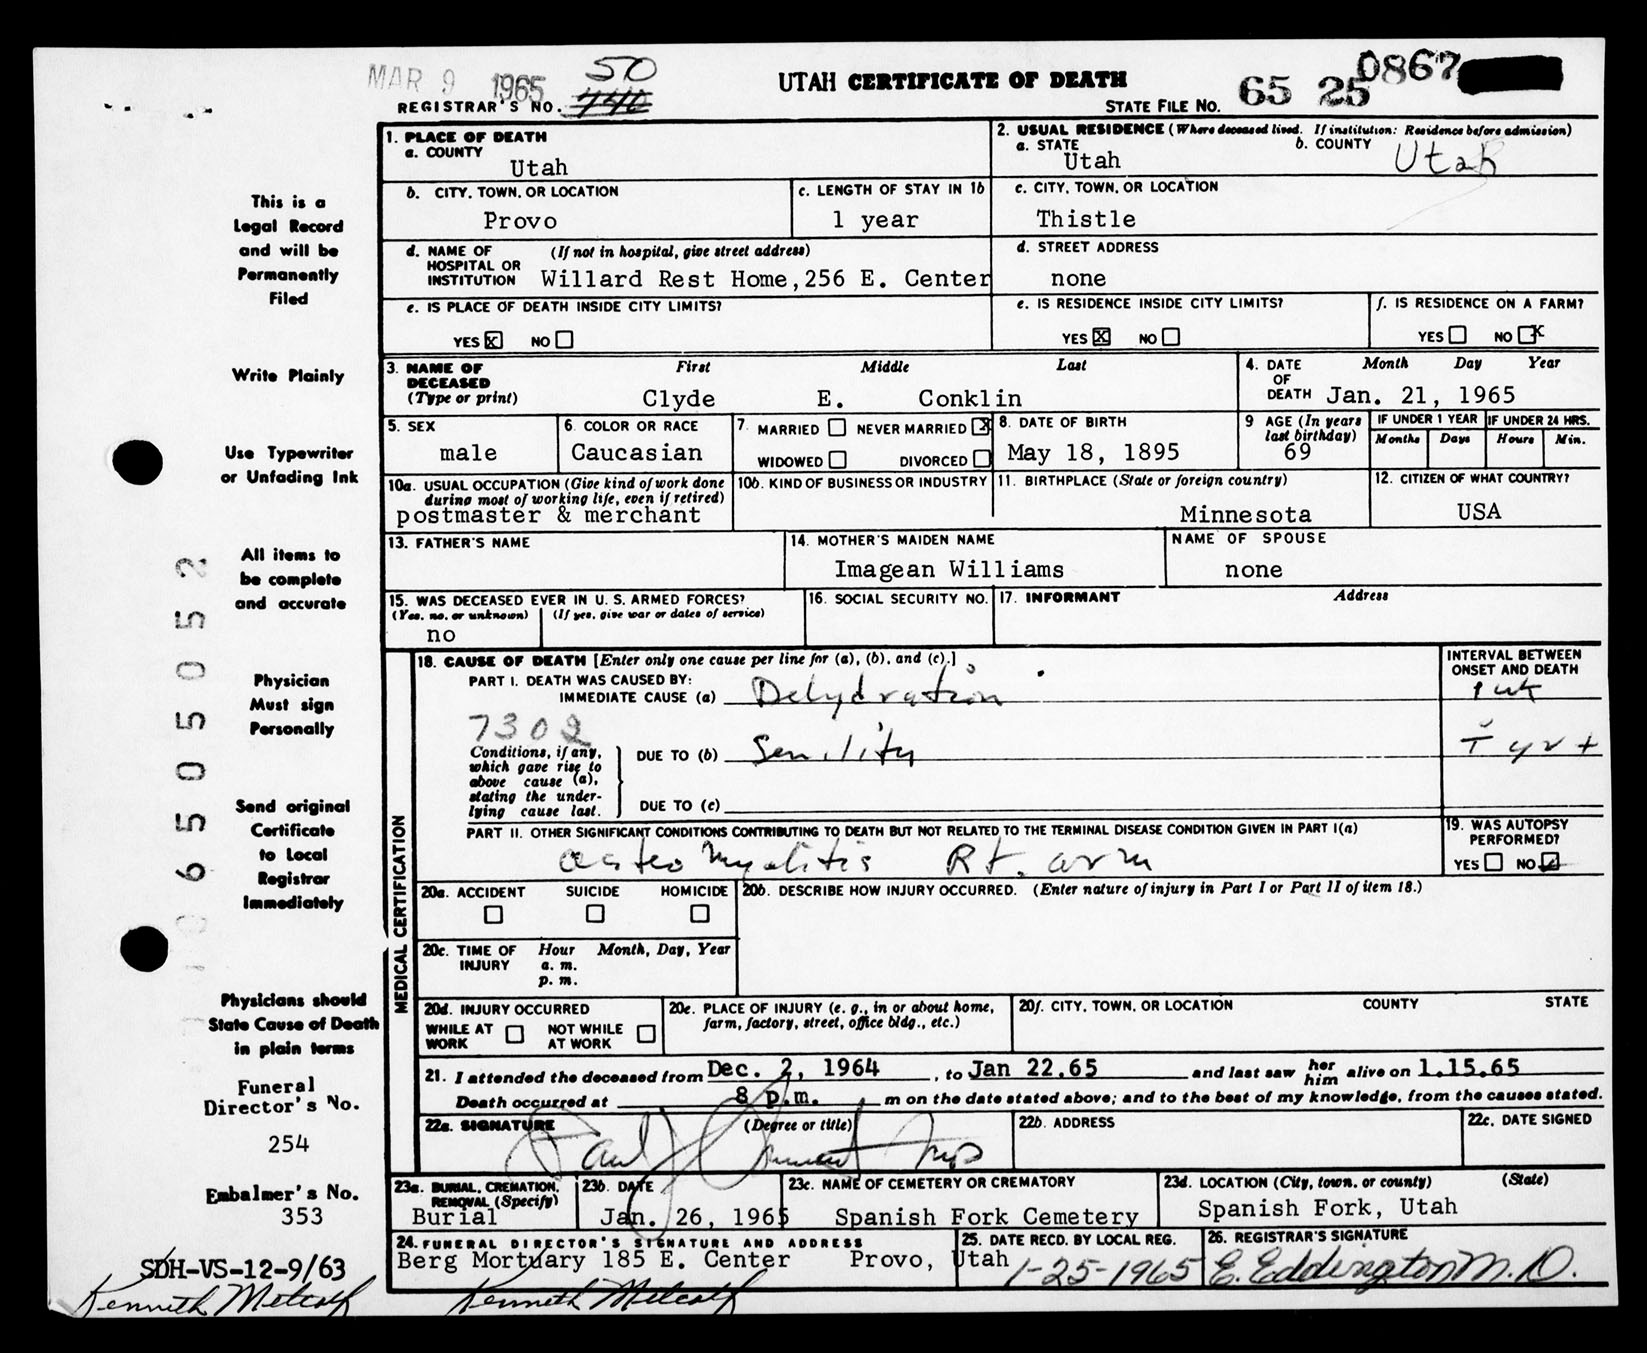 MAR 9 1965 50
UTAH CERTIFICATE OF DEATH
REGISTRAR'S NO. 440
STATE FILE NO. 65 25 0867
This is a
Legal Record
and will be
Permanently
Filed
Write Plainly
Use Typewriter
or Unfading Ink
All items to
be complete
and accurate
Physician
Must sign
Personally
Send original
Certificate
to Local
Registrar
Immediately
Physicians should
State Cause of Death
in plain terms
Funeral
Director's No.
254
Embalmer's No.
353
SDH-VS-12-9/63
Kenneth Metcalf
650505052
1. PLACE OF DEATH
a. COUNTY
Utah
2. USUAL RESIDENCE (Where deceased lived. If institution: Residence before admission)
a. STATE b. COUNTY
Utah Utah
b. CITY, TOWN, OR LOCATION
Provo
c. LENGTH OF STAY IN 1b
1 year
c. CITY, TOWN, OR LOCATION
Thistle
d. NAME OF (If not in hospital, give street address)
HOSPITAL OR
INSTITUTION Willard Rest Home,256 E. Center
d. STREET ADDRESS
none
e. IS PLACE OF DEATH INSIDE CITY LIMITS?
YES X NO
e. IS RESIDENCE INSIDE CITY LIMITS?
YES X NO
f. IS RESIDENCE ON A FARM?
YES NO X
3. NAME OF First Middle Last
DECEASED
(Type or print) Clyde E. Conklin
4. DATE Month Day Year
OF
DEATH Jan. 21, 1965
5. SEX
male
6. COLOR OR RACE
Caucasian
7. MARRIED NEVER MARRIED X
WIDOWED DIVORCED
8. DATE OF BIRTH
May 18, 1895
9 AGE (In years
last birthday)
69
IF UNDER 1 YEAR IF UNDER 24 HRS.
Months Days Hours Min.
10a. USUAL OCCUPATION (Give kind of work done
during most of working life, even if retired)
postmaster & merchant
10b. KIND OF BUSINESS OR INDUSTRY
11. BIRTHPLACE (State or foreign country)
Minnesota
12. CITIZEN OF WHAT COUNTRY?
USA
13. FATHER'S NAME
14. MOTHER'S MAIDEN NAME
Imagean Williams
NAME OF SPOUSE
none
15. WAS DECEASED EVER IN U. S. ARMED FORCES?
(Yes, no, or unknown) (If yes, give war or dates of service)
no
16. SOCIAL SECURITY NO.
17. INFORMANT Address
MEDICAL CERTIFICATION
18. CAUSE OF DEATH [Enter only one cause per line for (a), (b), and (c).]
INTERVAL BETWEEN
ONSET AND DEATH
PART I. DEATH WAS CAUSED BY:
IMMEDIATE CAUSE (a) Dehydration 1 wk
7302
Conditions, if any,
which gave rise to
above cause (a),
stating the under-
lying cause last.
DUE TO (b) Senility yr +
DUE TO (c)
PART II. OTHER SIGNIFICANT CONDITIONS CONTRIBUTING TO DEATH BUT NOT RELATED TO THE TERMINAL DISEASE CONDITION GIVEN IN PART I(a)
osteomyelitis Rt. arm
19. WAS AUTOPSY
PERFORMED?
YES NO
20a. ACCIDENT SUICIDE HOMICIDE
20b. DESCRIBE HOW INJURY OCCURRED. (Enter nature of injury in Part I or Part II of item 18.)
20c. TIME OF Hour Month, Day, Year
INJURY a. m.
p. m.
20d. INJURY OCCURRED
WHILE AT NOT WHILE
WORK AT WORK
20e. PLACE OF INJURY (e. g., in or about home,
farm, factory, street, office bldg., etc.)
20f. CITY, TOWN, OR LOCATION COUNTY STATE
21. I attended the deceased from Dec. 2, 1964, to Jan 22.65 and last saw her him alive on 1.15.65
Death occurred at 8 p.m. m on the date stated above; and to the best of my knowledge, from the causes stated.
22a. SIGNATURE (Degree or title)
Paul
22b. ADDRESS
22c. DATE SIGNED
23a. BURIAL, CREMATION,
REMOVAL (Specify)
Burial
23b. DATE
Jan. 26, 1965
23c. NAME OF CEMETERY OR CREMATORY
Spanish Fork Cemetery
23d. LOCATION (City, town, or county) (State)
Spanish Fork, Utah
24. FUNERAL DIRECTOR'S SIGNATURE AND ADDRESS
Berg Mortuary 185 E. Center Provo, Utah
Kenneth Metcalf
25. DATE RECD. BY LOCAL REG.
1-25-1965
26. REGISTRAR'S SIGNATURE
E. Eddington M. D.